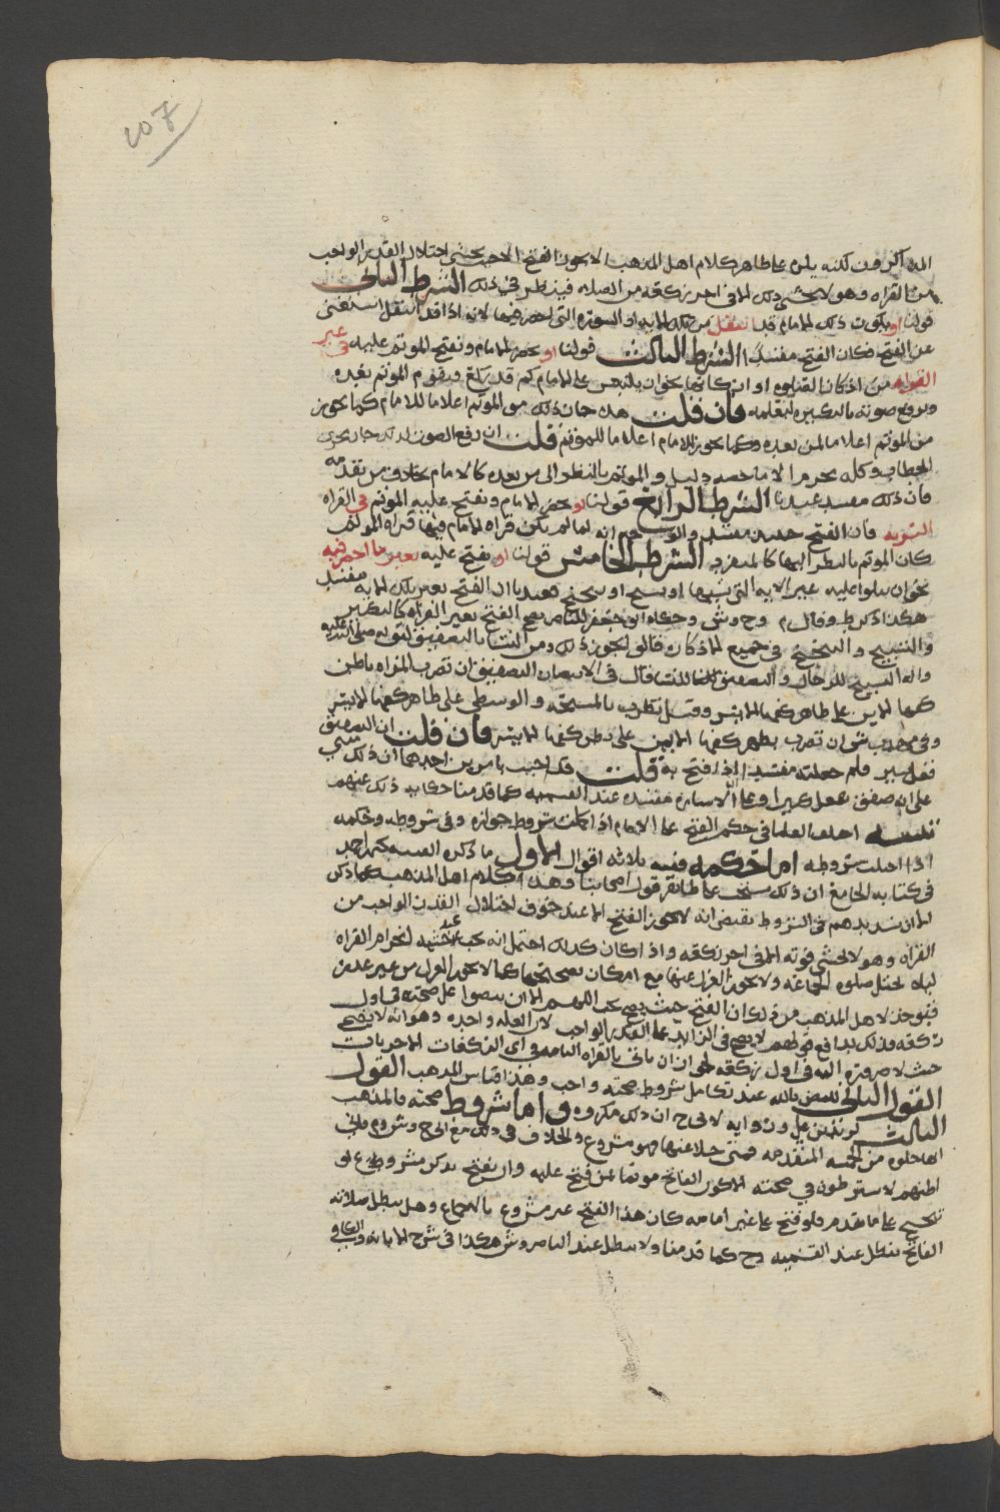 107
المذاكرون لكنه يلزم على ظاهر كلام اهل المذهب الا يجوز الفتح الا حيث يخشى اختلال القدر الواجب
من القراه وهو لا يخشى ذلك الا في اخر ركعه من الصلاه فينظر في ذلك الشرط الثاني
قولنا او يكون ذلك الامام قد انتقل من تلك الايه او السوره التي احصر فيها لانه اذا قد انتقل استغنى
عن الفتح فكان الفتح مفسدا الشرط الثالث قولنا او يحصر الامام ويفتح الموتم عليه في غير
القراه من اذكار الصلوه او اركانها نحو ان يلتبس على الامام كم قد ركع ويقوم الموتم بعده
ويرفع صوته بالتكبير ليعلمه فان قلت هلا جاز ذلك من الموتم اعلاما للامام كما يجوز
من الموتم اعلاما لمن بعده وكما يجوز للامام اعلاما للموتم قلت ان رفع الصوت
الخطاب وكله محرم الا ما خصه دليل والموتم بالنظر الى من بعده كالامام بخلاف من تقدمه
فان ذلك مفسد عندنا الشرط الرابع قولنا او يحصر الامام ويفتح عليه الموتم في القراه
السريه فان الفتح حينئذ مفسد والوجه انه لما لم يكن قراه الامام فيها قراه للموتم
كان الموتم بالنظر اليها كالمنفرد الشرط الخامس قولنا او يفتح عليه بغير ما احصر فيه
نحو ان يتلوا عليه غير الايه التي نسيها او يسبح او يتنحنح فعندنا ان الفتح بغير تلك الايه مفسد
هكذا ذكر ط وقال م وح وش وحكاه ابو جعفر للناصر يصح الفتح بغير القراه كالتكبير
والتسبيح والتنحنح في جميع الاذكار قالوا يجوز ذلك ومن النسا بالتصفيق لقوله صلى الله عليه
واله التسبيح للرجال والتصفيق للنسا قال في الانتصار التصفيق ان تضرب المراه باطن
كفها الايمن على ظاهر كفها الايسر وقيل تضرب بالمسبحه والوسطى على ظاهر كفها الايسر
وفي مهذب ش ان تضرب بظهر كفها الايمن على بطن كفها الايسر فان قلت ان التصفيق
فعل يسير فلم جعلته مفسدا اذا فتح به قلت قد اجيب بامرين احدهما ان ذلك مبني
على انه صفق بفعل كثير او على ان الاشاره مفسده عند القسميه كما قدمنا حكايه ذلك عنهم
تنبيه اختلف العلما في حكم الفتح على الامام اذا كملت شروط جوازه وفي شروطه وحكمه
اذا اختلت شروطه اما حكمه ففيه ثلاثه اقوال الاول ما ذكره الفقيه
في كتابه الجامع ان ذلك مستحب على ظاهر قول اصحابنا وهذا كلام اهل المذهب كما ذكر
الا ان تشديدهم في الشروط يقتضي انه لا يجوز الفتح الا عند خوف اختلال القدر الواجب من
القراه وهو لا يخشى فوته الا في اخر ركعه واذا كان كذلك احتمل انه يجب عند خشيه انخرام القراه
ليلا تختل صلوه الجماعه ولا يجوز العزل عنها مع امكان تصحيحها كما لا يجوز العزل من غير عذر
فيوخذ لاهل المذهب من ذلك ان الفتح حيث يصح يجب اللهم الا ان ينصوا على صحته في اول
ركعه فذلك يدافع قولهم لا يصح في الزايد على القدر الواجب لان العله واحده وهو انه لا يصح
حيث لا ضروره اليه في اول ركعه لجواز ان ياتي بالقراه التامه في اي الركعات الاخريات
القول الثاني للمنصور بالله عند تكامل شروط صحته واجب وهذا قياس المذهب القول
الثالث لزيد بن علي وروايه لابي ح ان ذلك مكروه واما شروط صحته فالمذهب
انها خلوه من الخمسه المتقدمه فمتى خلا عنها فهو مشروع والخلاف في ذلك مع ابي ح وش وم فاني
اظنهم لا يشترطون في صحته الا كون الفاتح موتما لمن فتح عليه وان يفتح بذكر مشروع او
تنحنح على ما تقدم فلو فتح على غير امامه كان هذا الفتح غير مشروع بالاجماع وهل تبطل صلاته
الفاتح تبطل عند القسميه وح كما قدمنا ولا تبطل عند الناصر وش هكذا في شرح الابانه والكافي